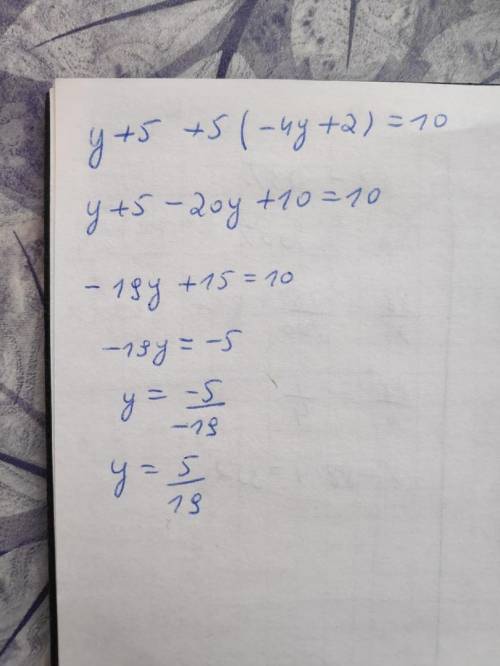 y+5 +5(-4y+2)=10
y+5-20y+10=10
-19y+15=10
-19y=-5
y = -5/-19
y = 5/19